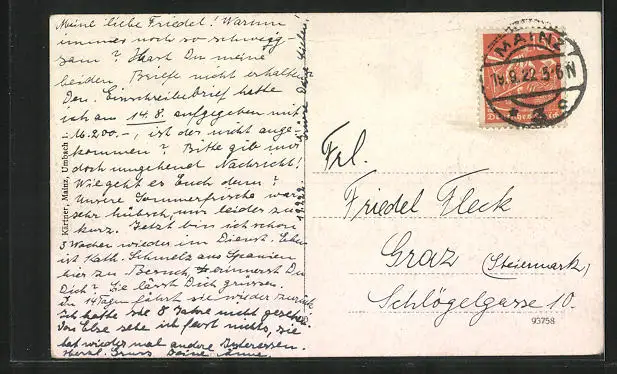 Meine liebe Friedel! Warum
immer noch so schweig-
sam? Hast Du meine
beiden Briefe nicht erhalten?
Den Einschreibebrief hatte
ich am 14.8. aufgegeben mit
16.200.-, ist der nicht ange-
kommen? Bitte gib mir
doch umgehend Nachricht!
Wie geht es Euch denn?
Unsere Sommerfrische war
sehr hübsch, nur leider zu
kurz. Jetzt bin ich schon
3 Wochen wieder im Dienst. Eben
ist Kath. Schmelz aus Spanien
hier zu Besuch, erinnerst Du
Dich? Sie lässt Dich grüssen.
In 14 Tagen fährt sie wieder zurück
Ich hatte sie 8 Jahre nicht gesehen.
Von Else sehe ich fast nichts, sie
hat wieder mal andere Interessen.
Herzl. Gruss Deine Änne
Kärtner, Mainz, Umbach 1.
MAINZ
19.9.22 5-6 N
Deutsches Reich
Frl.
Friedel Fleck
Graz (Steiermark)
Schlögelgasse 10.
93758